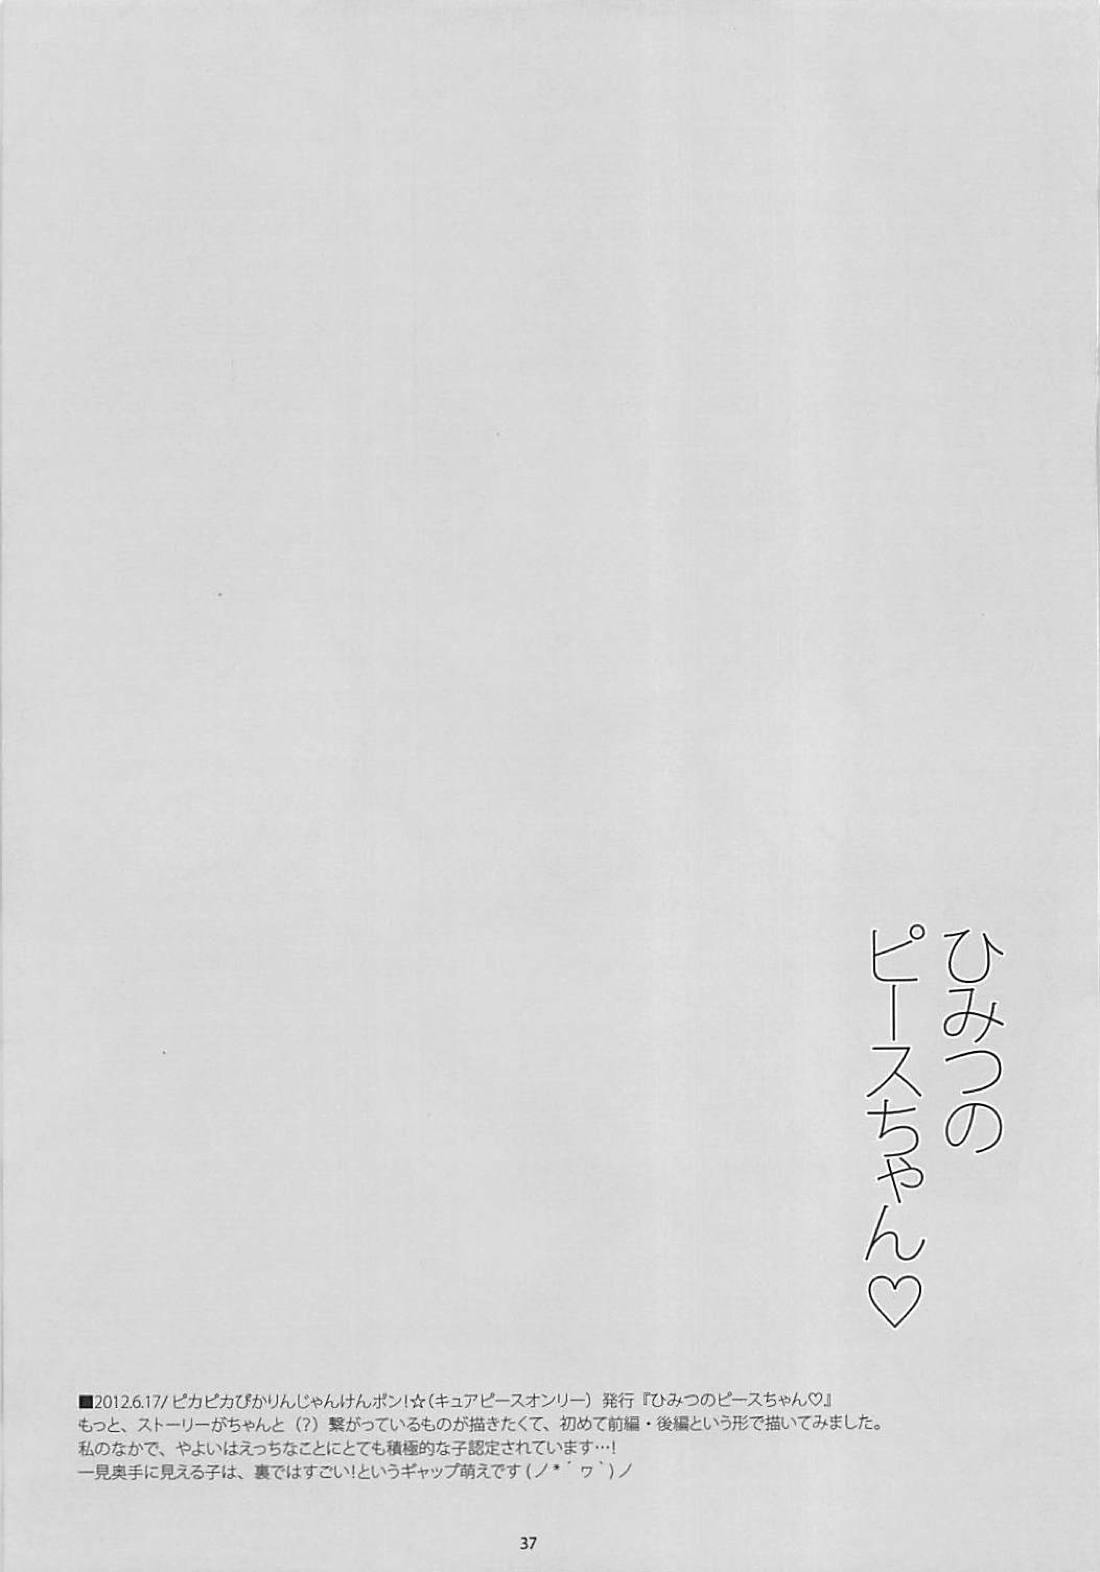 ひみつの
ピースちゃん♡
■2012.6.17/ ピカピカぴかりんじゃんけんポン!☆(キュアピースオンリー) 発行『ひみつのピースちゃん♡』
もっと、ストーリーがちゃんと(?)繋がっているものが描きたくて、初めて前編・後編という形で描いてみました。
私のなかで、やよいはえっちなことにとても積極的な子認定されています…!
一見奥手に見える子は、裏ではすごい!というギャップ萌えです(ノ*´ヮ`)ノ
37